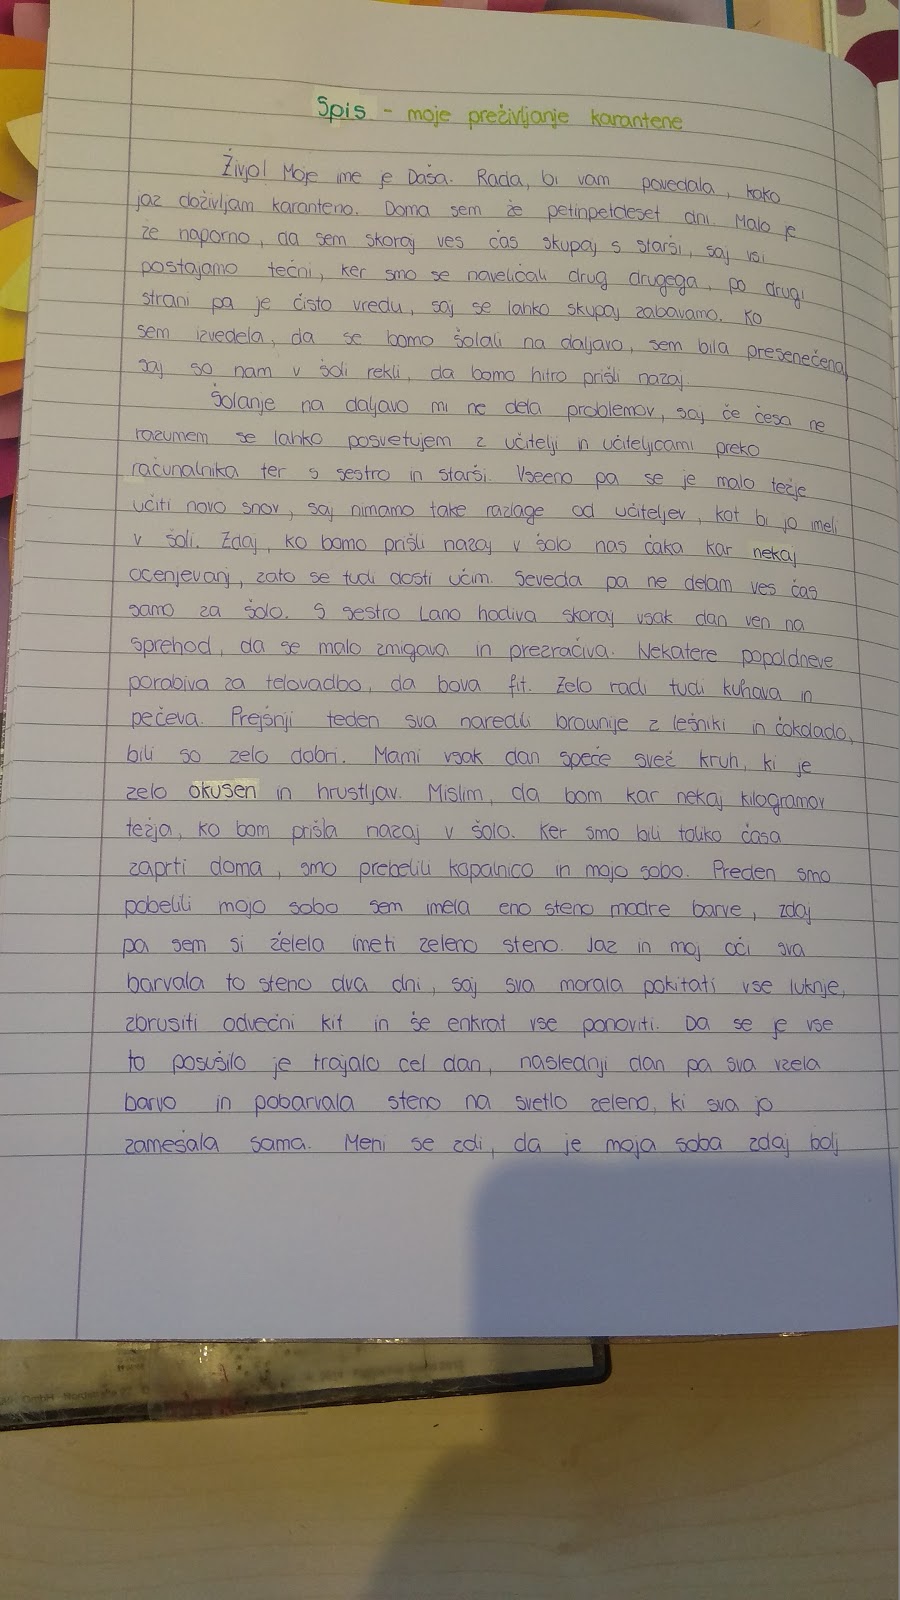 Spis - moje preživljanje karantene
Živjo! Moje ime je Daša. Rada, bi vam povedala, kako
jaz doživljam karanteno. Doma sem že petinpetdeset dni. Malo je
že naporno, da sem skoraj ves čas skupaj s starši, saj vsi
postajamo tečni, ker smo se naveličali drug drugega, po drugi
strani pa je čisto vredu, saj se lahko skupaj zabavamo. Ko
sem izvedela, da se bomo šolali na daljavo, sem bila presenečena,
saj so nam v šoli rekli, da bomo hitro prišli nazaj.
Šolanje na daljavo mi ne dela problemov, saj če česa ne
razumem se lahko posvetujem z učitelji in učiteljicami preko
računalnika ter s sestro in starši. Vseeno pa se je malo težje
učiti novo snov, saj nimamo take razlage od učiteljev, kot bi jo imeli
v šoli. Zdaj, ko bomo prišli nazaj v šolo nas čaka kar nekaj
ocenjevanj, zato se tudi dosti učim. Seveda pa ne delam ves čas
samo za šolo. S sestro Lano hodiva skoraj vsak dan ven na
sprehod, da se malo zmigava in prezračiva. Nekatere popoldneve
porabiva za telovadbo, da bova fit. Zelo radi tudi kuhava in
pečeva. Prejšnji teden sva naredili brownije z lešniki in čokolado,
bili so zelo dobri. Mami vsak dan speče svež kruh, ki je
zelo okusen in hrustljav. Mislim, da bom kar nekaj kilogramov
težja, ko bom prišla nazaj v šolo. Ker smo bili toliko časa
zaprti doma, smo prebelili kopalnico in mojo sobo. Preden smo
pobelili mojo sobo sem imela eno steno modre barve, zdaj
pa sem si želela imeti zeleno steno. Jaz in moj oči sva
barvala to steno dva dni, saj sva morala pokitati vse luknje,
zbrusiti odvečni kit in še enkrat vse ponoviti. Da se je vse
to posušilo je trajalo cel dan, naslednji dan pa sva vzela
barvo in pobarvala steno na svetlo zeleno, ki sva jo
zamešala sama. Meni se zdi, da je moja soba zdaj bolj